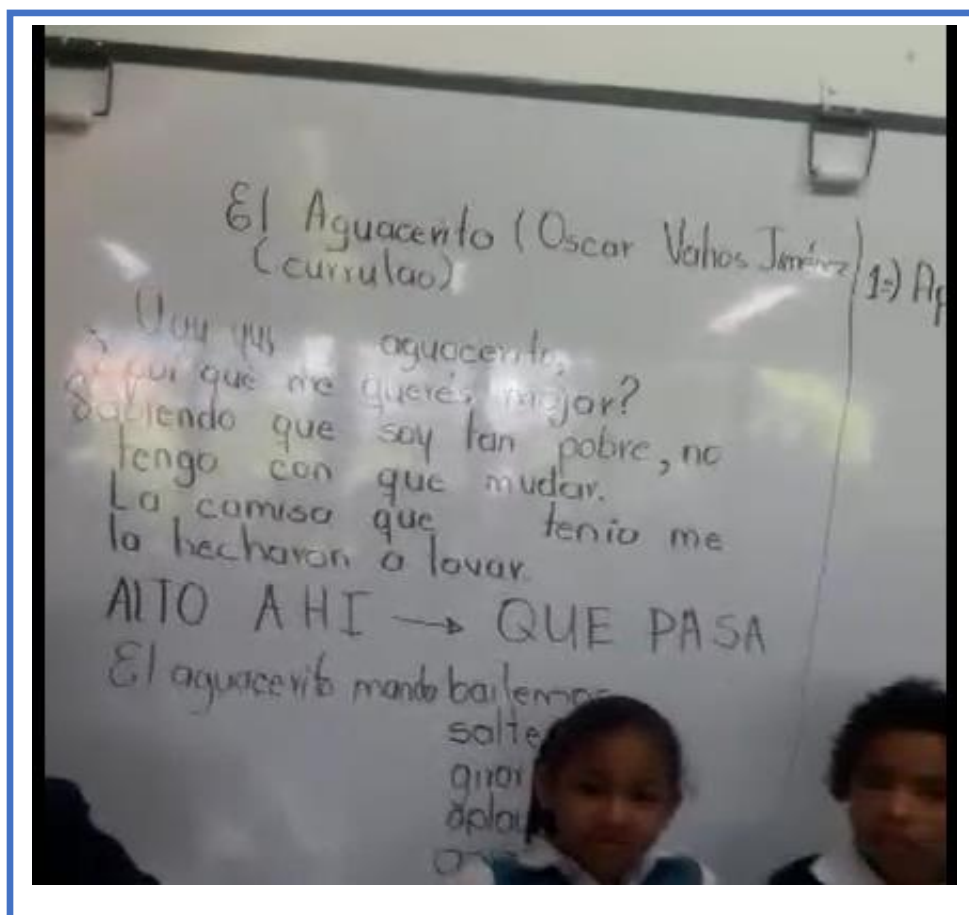 El Aguacerito (Oscar Vahos Jiménez)
(currulao)
1=) Ap
aguacerito,
que me querés mejor?
Sabiendo que soy tan pobre, no
tengo con que mudar.
La camisa que tenia me
la hecharon a lavar.
AlTO AHI → QUE PASA
El aguacerito mando bailemos
salte
girar
aplau